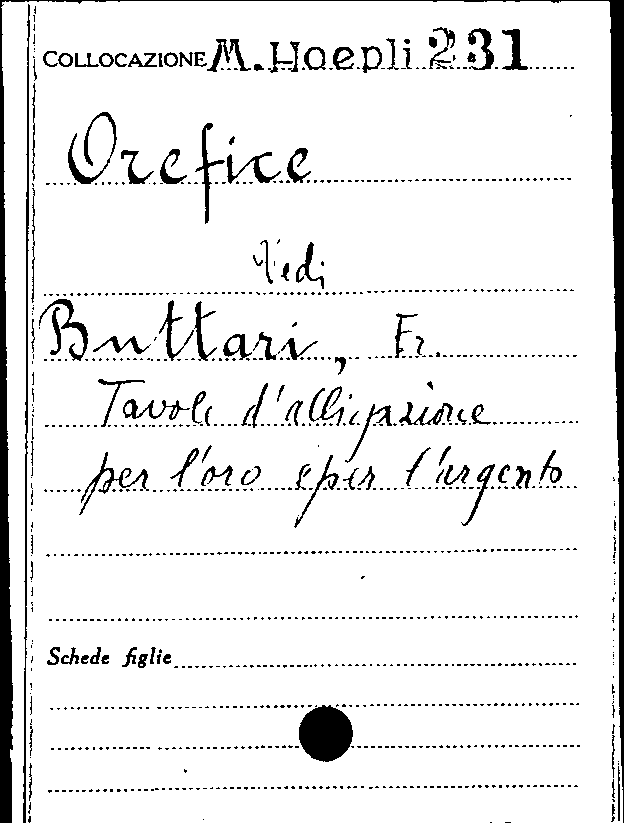 COLLOCAZIONE M. Hoepli 231
Orefice
Vedi
Buttari, Fr.
Tavole d'alligazione
per l'oro e per l'argento
Schede figlie